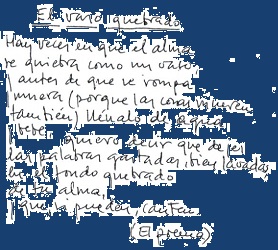 El vaso quebrado
Hay veces en que el alma
se quiebra como un vaso
antes de que se rompa
muera (porque las cosas mueren
también) llénalo de agua
bebe
quiero decir que dejes
las palabras gastadas, bien lavadas
en el fondo quebrado
de tu alma,
que si pueden, canten